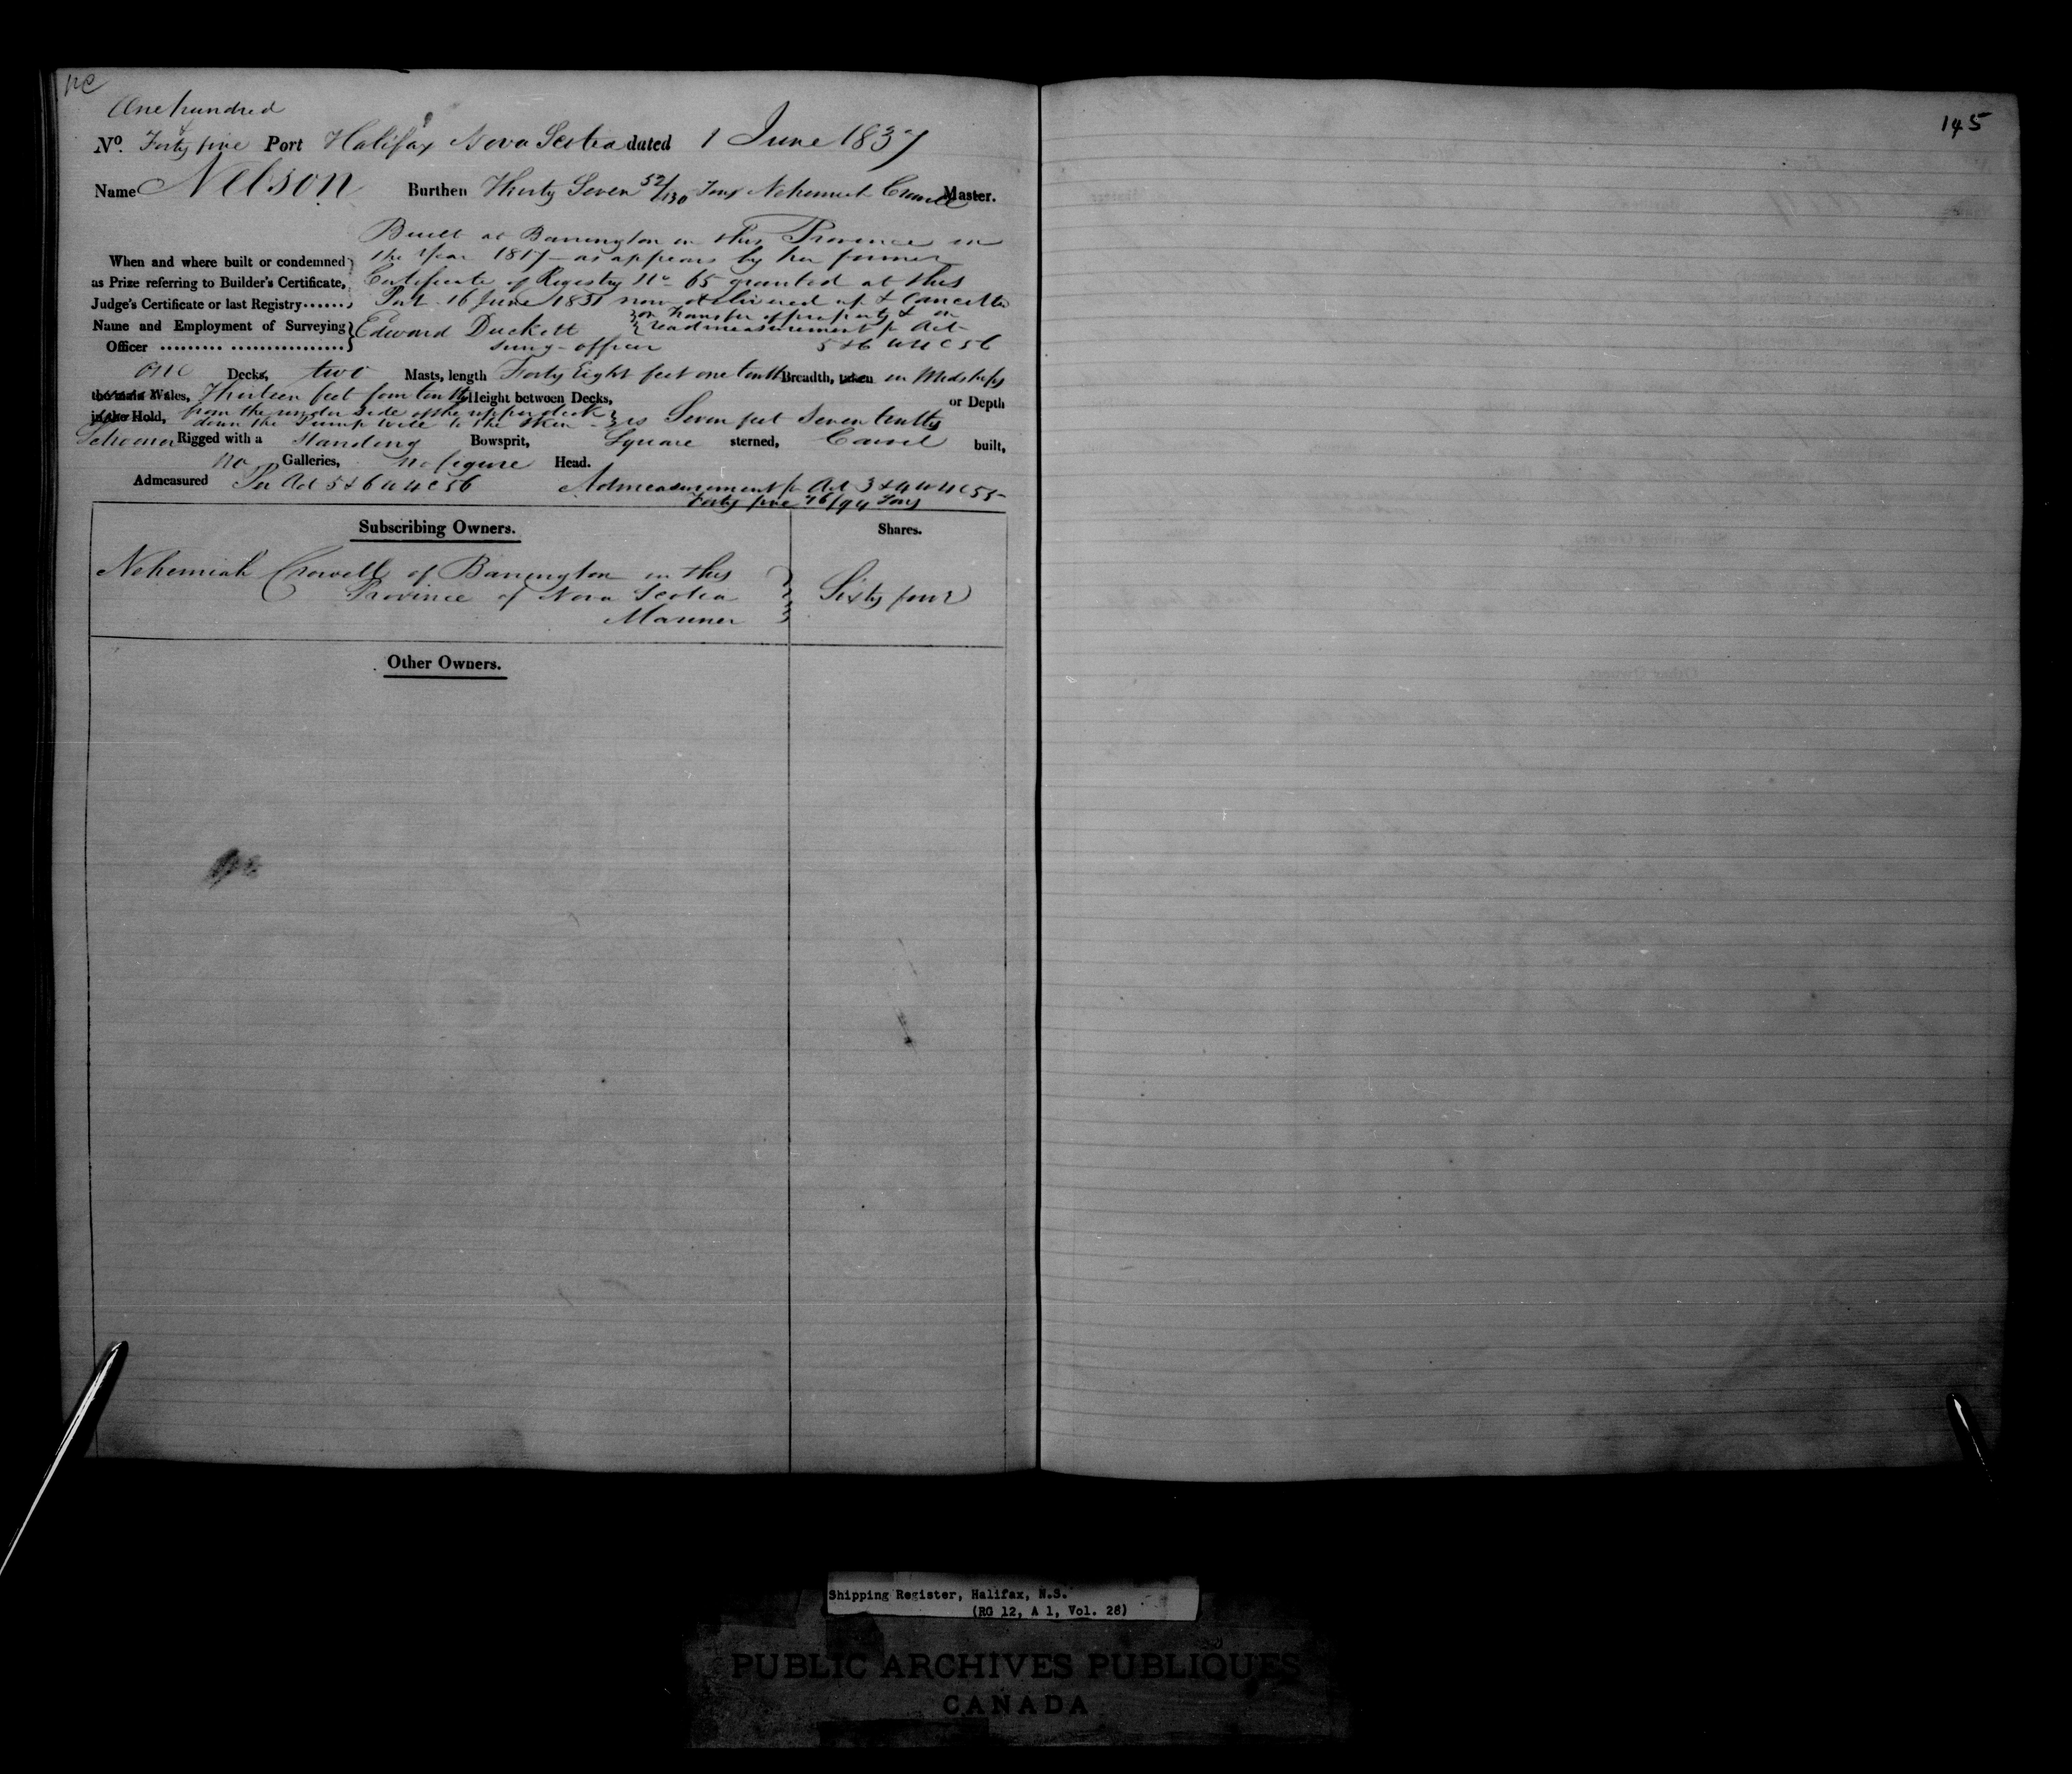 One hundred
No. Forty five Port Halifax Nova Scotia dated 1 June 1837
Name Nelson Burthen Thirty Seven 52/130 Tons Nehemiah Crowell Master.
Built at Barrington in this Province in
When and where built or condemned the Year 1817 as appears by her former
as Prize referring to Builder's Certificate, Certificate of Registry No. 65 granted at this
Judge's Certificate or last Registry...... Port 16 June 1831 now delivered up & Cancelled
on Transfer of property & on
Name and Employment of Surveying Edward Duckett readmeasurement pr Act
Officer ......... ................ survg officer 5 & 6 W 4 C 56
one Decks, two Masts, length Forty Eight feet one tenth Breadth, taken in Midships
the main Wales, Thirteen feet four tenths Height between Decks, or Depth
in the Hold, from the under side of the upper deck
down the Pump well to the Skin is Seven feet Seven tenths
Schooner Rigged with a standing Bowsprit, Square sterned, Carvel built,
no Galleries, no figure Head.
Admeasured Per Act 5 & 6 W 4 C 56 Admeasurement pr Act 3 & 4 W 4 C 55
Forty five 76/94 Tons
Subscribing Owners. Shares.
Nehemiah Crowell of Barrington in this
Province of Nova Scotia Sixty four
Mariner
Other Owners.
145
Shipping Register, Halifax, N.S.
(RG 12, A 1, Vol. 28)
PUBLIC ARCHIVES PUBLIQUES
CANADA